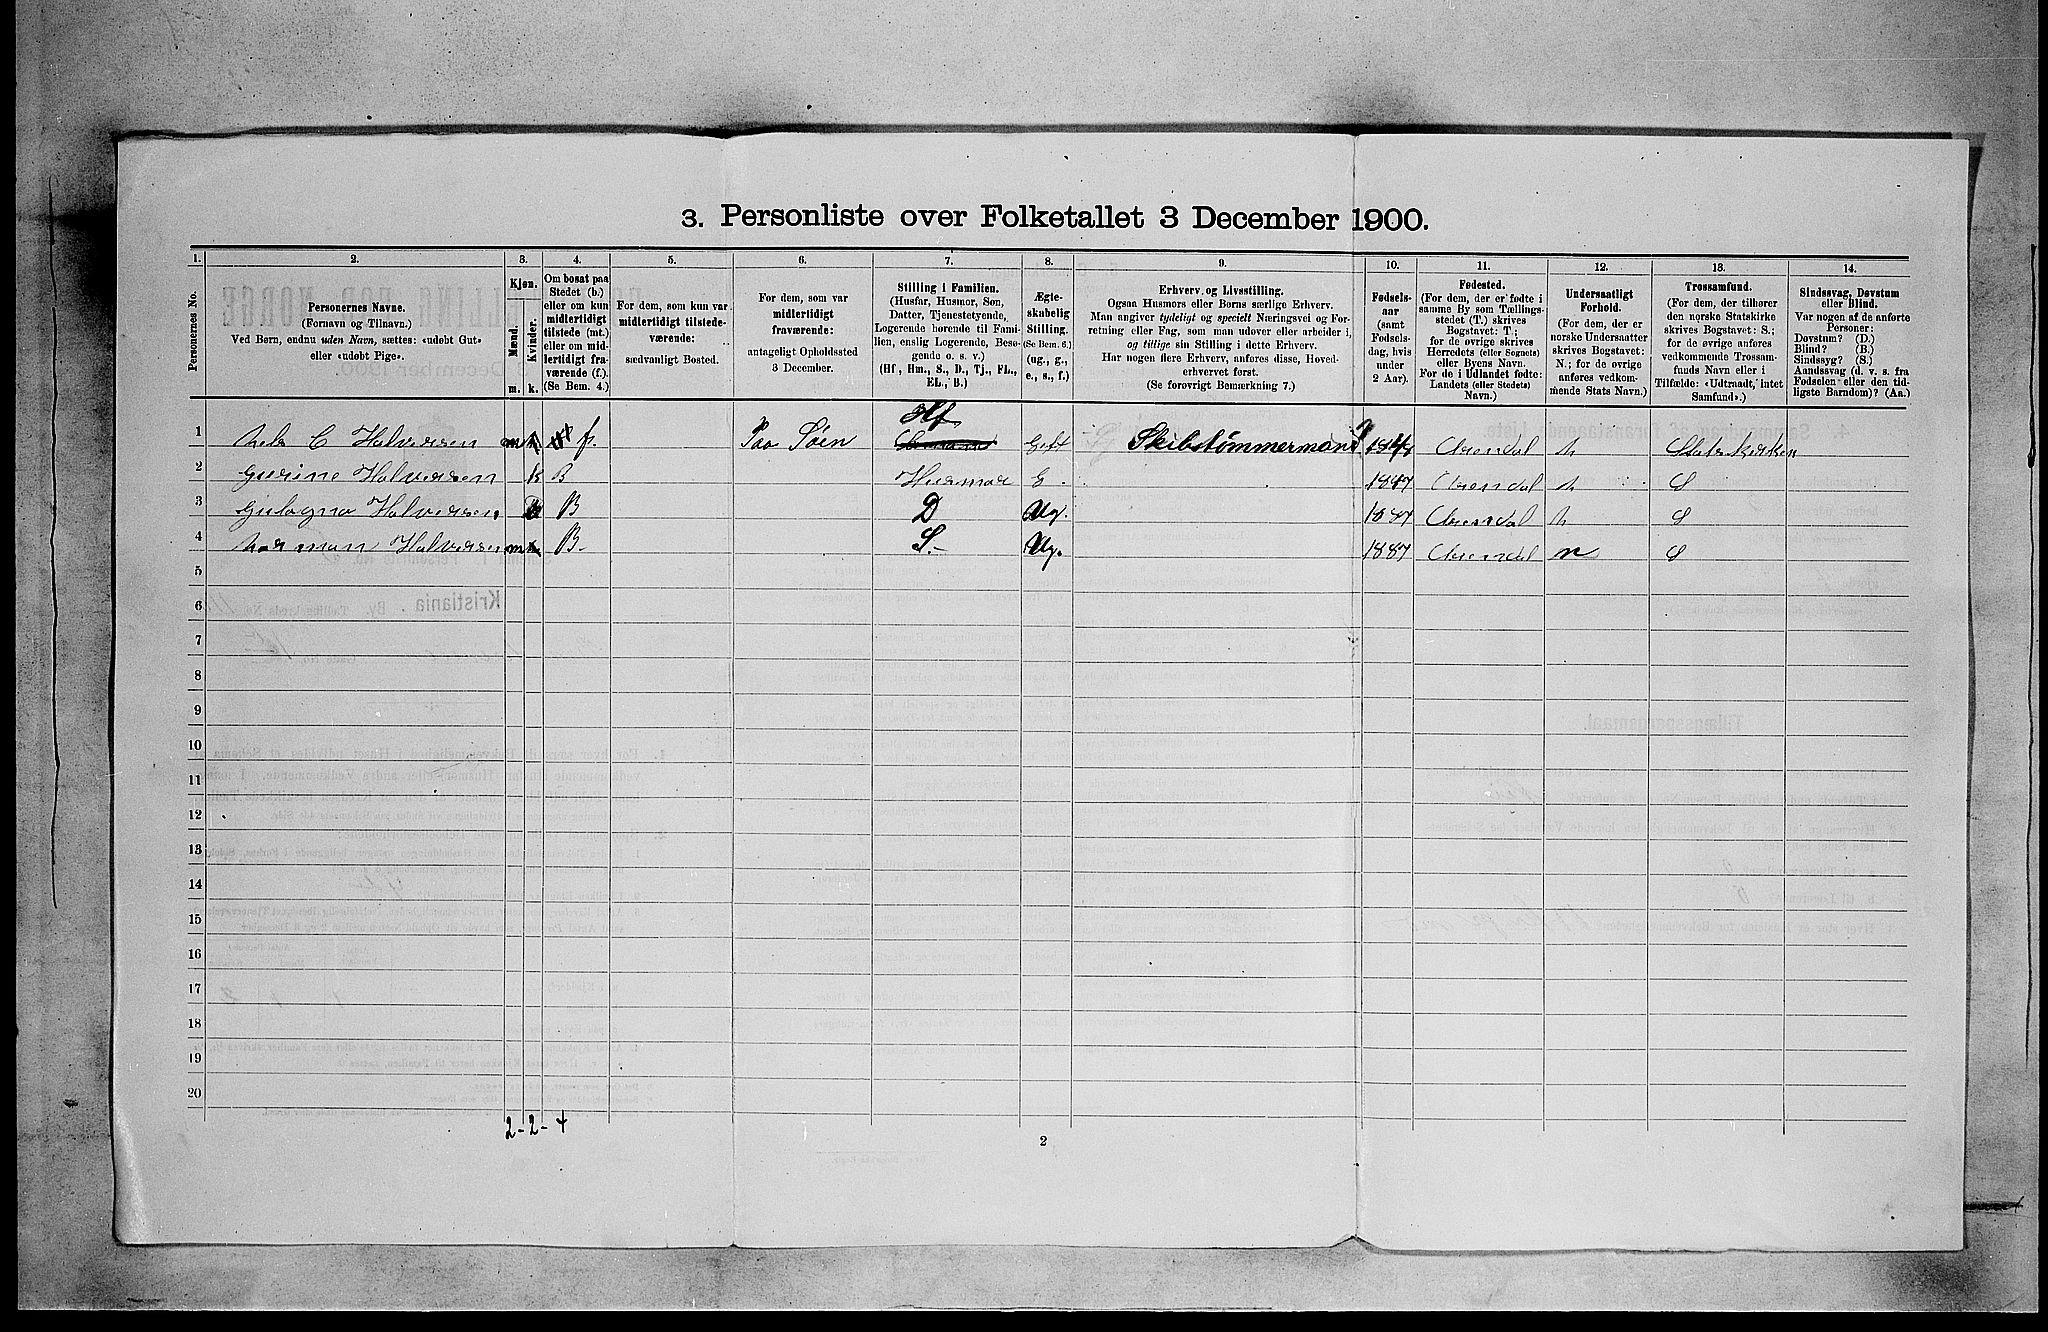 3. Personliste over Folketallet 3 December 1900.
1. 2. 3. 4. 5. 6. 7. 8. 9. 10. 11. 12. 13. 14.
Personernes No.
Personernes Navne.
(Fornavn og Tilnavn.)
Ved Børn, endnu uden Navn, sættes: «udøbt Gut»
eller «udøbt Pige».
Kjøn.
Mænd.
Kvinder.
m. k.
Om bosat paa
Stedet (b.)
eller om kun
midlertidigt
tilstede (mt.)
eller om mid-
lertidigt fra-
værende (f.).
(Se Bem. 4.)
For dem, som kun var
midlertidigt tilstede-
værende:
sædvanligt Bosted.
For dem, som var
midlertidigt
fraværende:
antageligt Opholdssted
3 December.
Stilling i Familien.
(Husfar, Husmor, Søn,
Datter, Tjenestetyende,
Logerende hørende til Fami-
lien, enslig Logerende, Besø-
gende o. s. v.)
(Hf., Hm., S., D., Tj., FL.,
EL., B.)
Ægte-
skabelig
Stilling.
(Se Bem. 6.)
(ug., g.,
e., s., f.)
Erhverv og Livsstilling.
Ogsaa Husmors eller Børns særlige Erhverv.
Man angiver tydeligt og specielt Næringsvei og For-
retning eller Fag, som man udøver eller arbeider i,
og tillige sin Stilling i dette Erhverv.
Har nogen flere Erhverv, anføres disse, Hoved-
erhvervet først.
(Se forøvrigt Bemærkning 7.)
Fødsels-
aar
(samt
Fødsels-
dag, hvis
under
2 Aar).
Fødested.
(For dem, der er fødte i
samme By som Tællings-
stedet (T.) skrives
Bogstavet: T.;
for de øvrige skrives
Herredets (eller Sognets)
eller Byens Navn.
For de i Udlandet fødte:
Landets (eller Stedets)
Navn.)
Undersaatligt
Forhold.
(For dem, der er
norske Undersaatter
skrives Bogstavet:
N.; for de øvrige
anføres vedkom-
mende Stats Navn.)
Trossamfund.
(For dem, der tilhører
den norske Statskirke
skrives Bogstavet: S.;
for de øvrige anføres
vedkommende Trossam-
funds Navn eller i
Tilfælde: «Udtraadt, intet
Samfund».)
Sindssvag, Døvstum
eller Blind.
Var nogen af de anførte
Personer:
Døvstum? (D.)
Blind? (B.)
Sindssyg? (S.)
Aandssvag (d. v. s. fra
Fødselen eller den tid-
ligste Barndom)? (Aa.)
Hf
1 C Halversen m f. Paa Søen Gift Skibstømmermand Arendal N Statskirken
2 Gurine Halversen k B Husmor G Arendal N S
3 Halversen B D Ug. Arendal N S
4 Halversen m B. S. Ug. 1887 Arendal N S
5
6
7
8
9
10
11
12
13
14
15
16
17
18
19
20
2-2-4
2